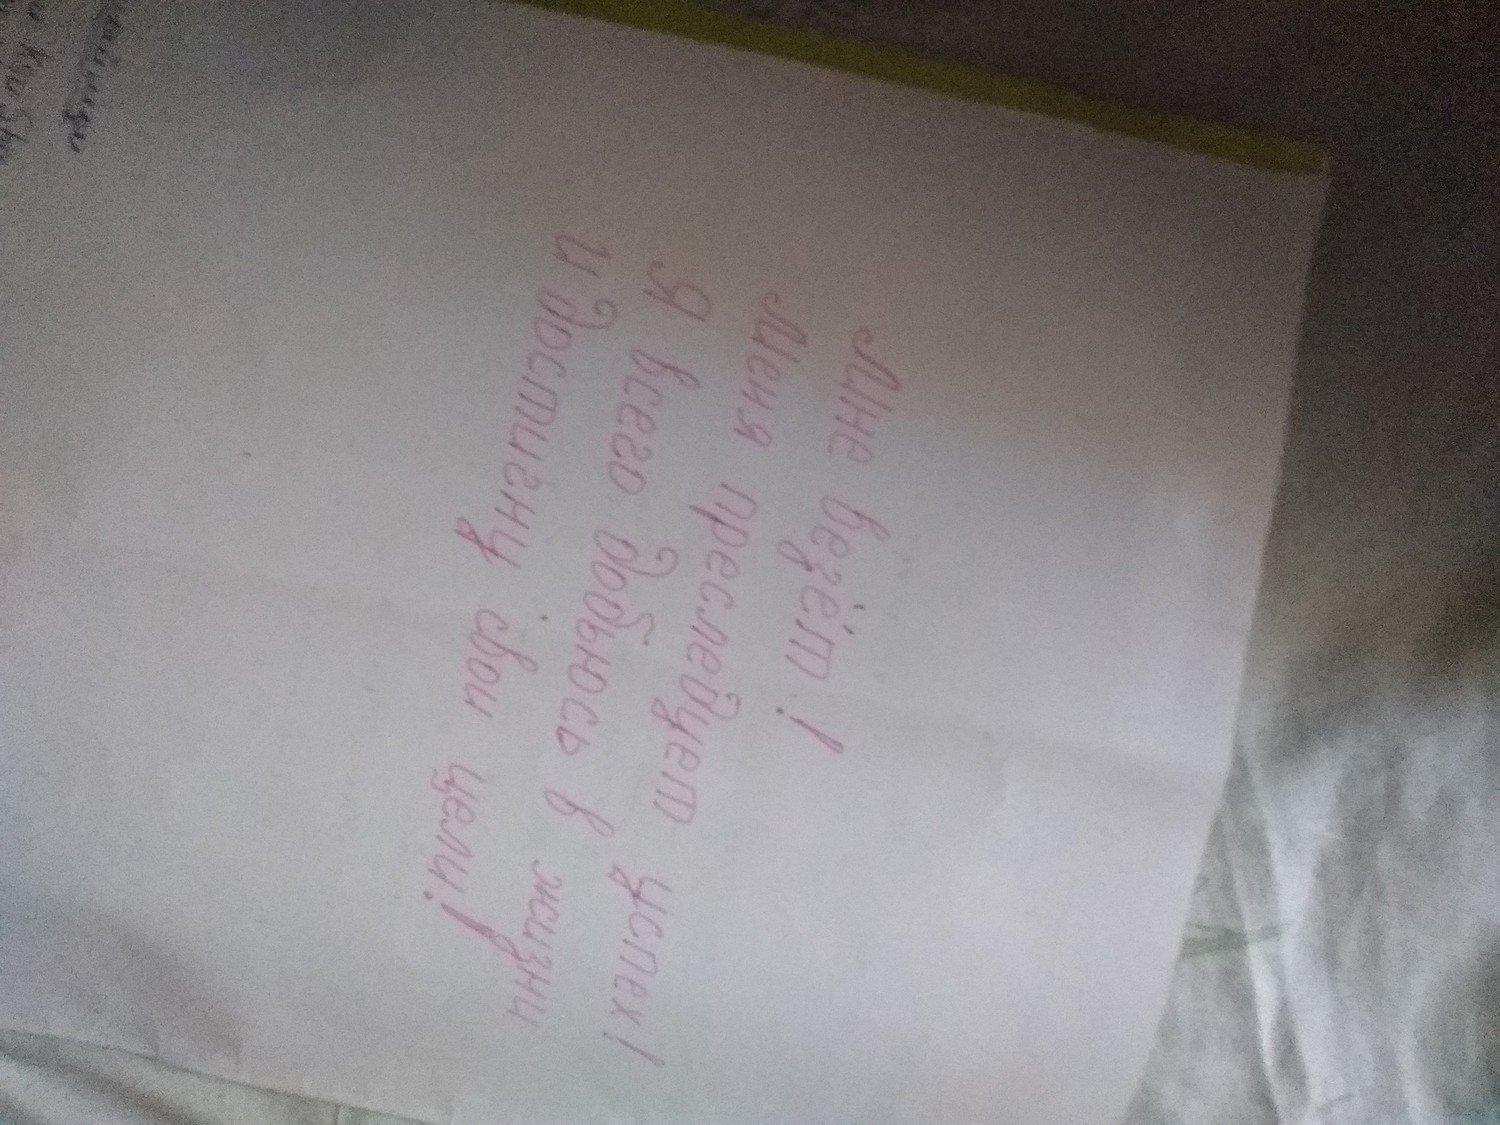 Мне везёт!
Меня преследует успех!
Я всего добьюсь в жизни
и достигну свои цели!